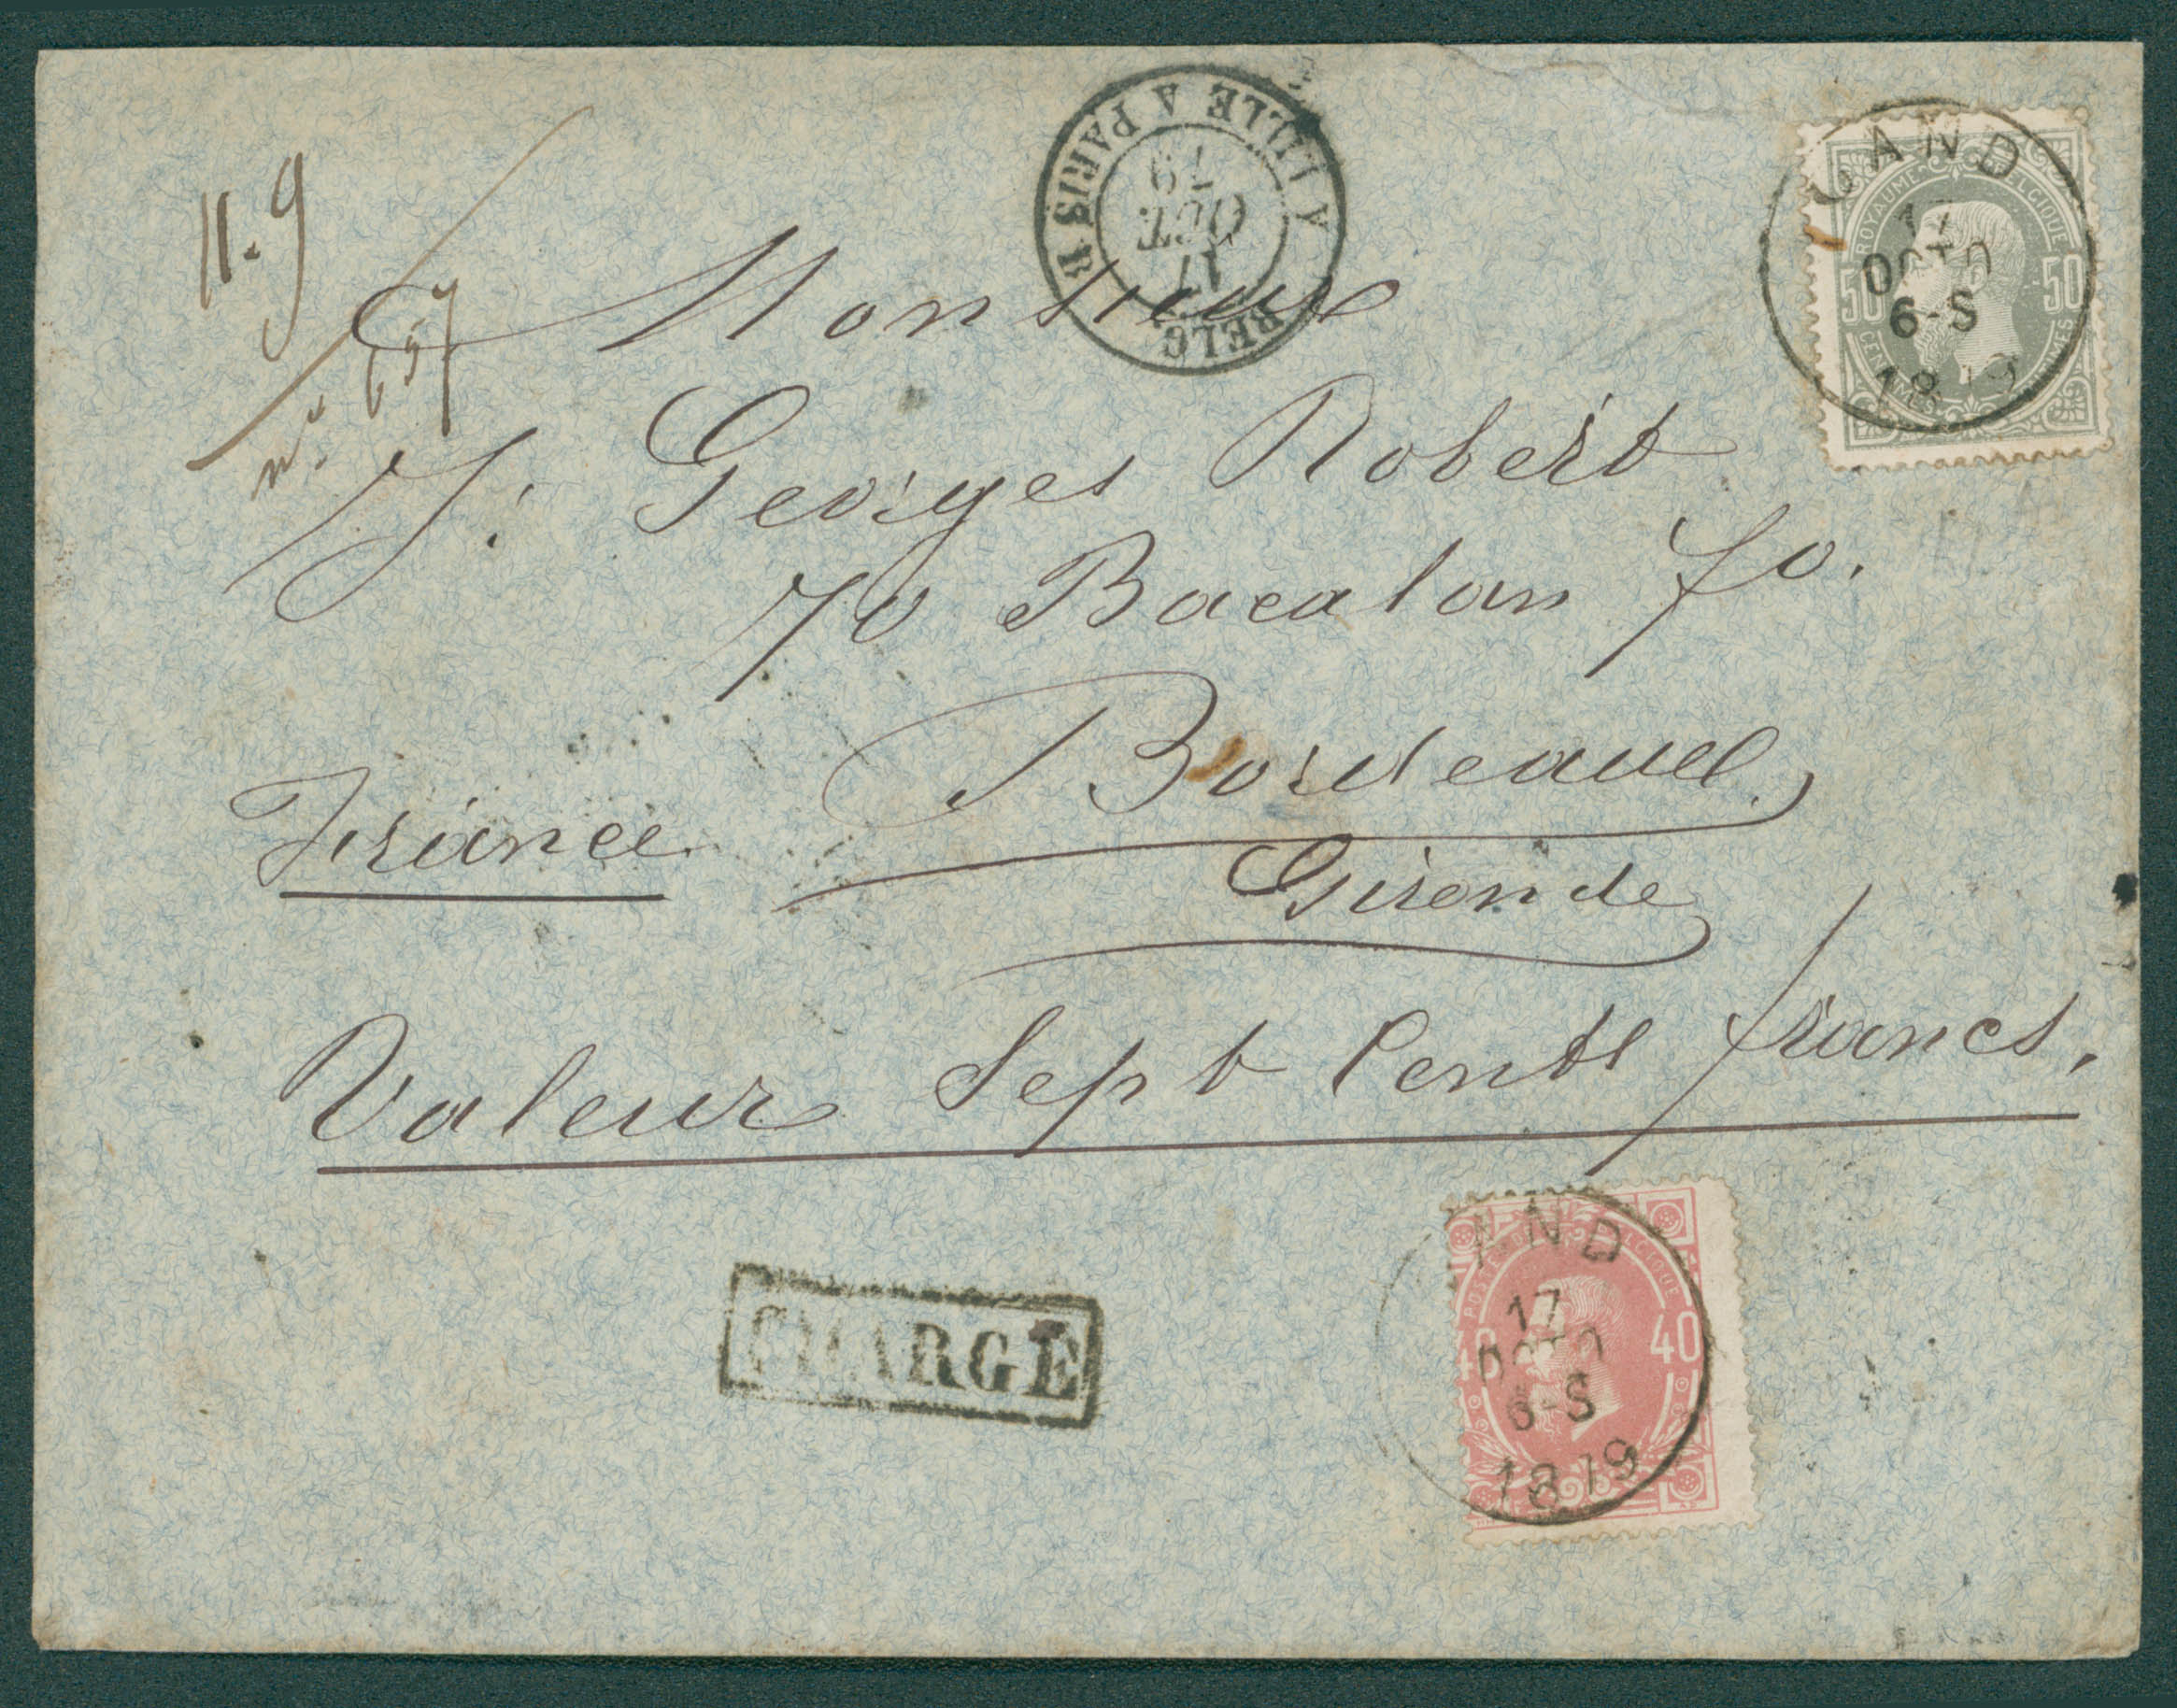 11.9
n° 657
BELG. A LILLE A PARIS
17
OCT
79
GAND
17
OCTO
6-S
1879
ROYAUME BELGIQUE
50 50
CENTIMES
Monsieur
J: Georges Robert
70 Bacalan fo.
Bordeaux
France
Gironde
Valeur Sept Cents francs.
CHARGÉ
GAND
17
OCTO
6-S
1879
POSTES BELGIQUE
40 40